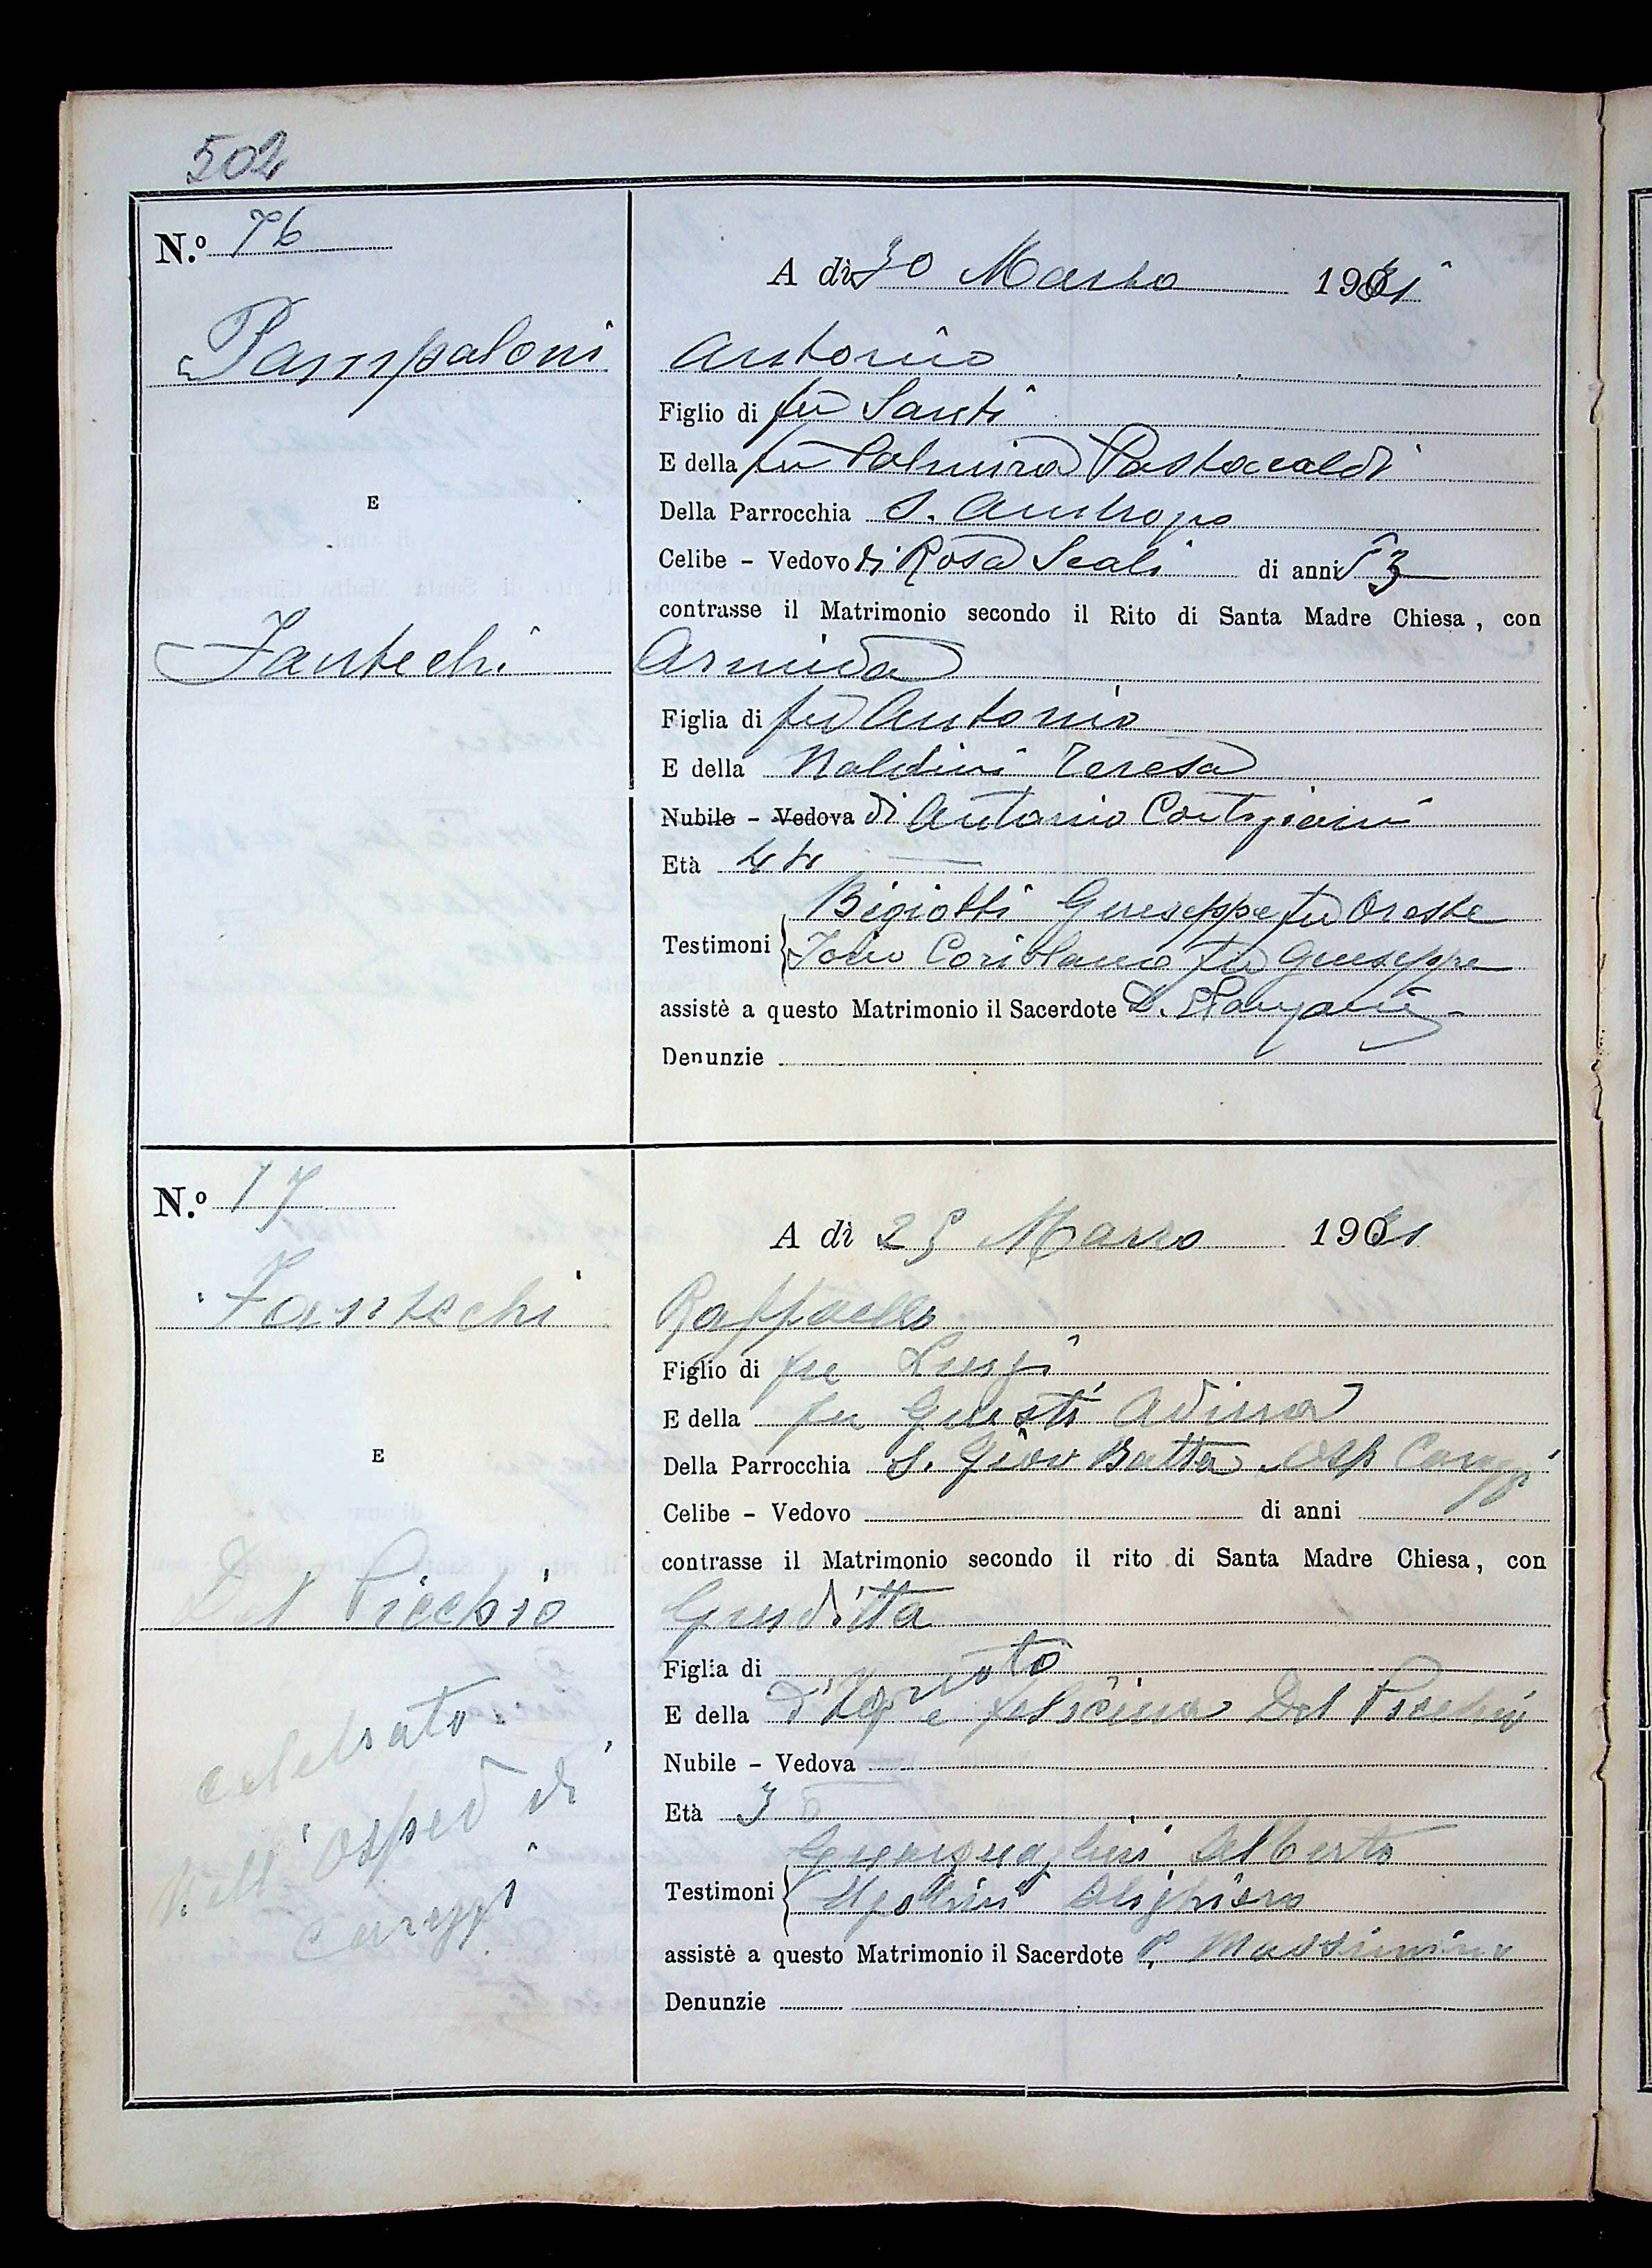 502
N.º 76
A dì 30 Marzo 1931
Pampaloni
Antonio
Figlio di fu Santi
E della fu Palmira Pastacaldi
E
Della Parrocchia S. Ambrogio
Celibe - Vedovo di Rosa Scali di anni 53
contrasse il Matrimonio secondo il Rito di Santa Madre Chiesa, con
Fantechi
Armida
Figlia di fu Antonio
E della Naldini Teresa
Nubile - Vedova di Antonio Cortigiani
Età
Bigiotti Giuseppe fu Oreste
Testimoni
Coriolano fu Giuseppe
assistè a questo Matrimonio il Sacerdote D.
Denunzie
N.º 17
A dì 25 Marzo 1931
Fantechi
Raffaello
Figlio di fu Luigi
E della fu Giusti Adima
E
Della Parrocchia S. Giov Batta Osp
Celibe - Vedovo di anni
contrasse il Matrimonio secondo il rito di Santa Madre Chiesa, con
Del Picchio
Giuditta
Figlia di
E della e Felicina Del Picchio
Nubile - Vedova
celebrato
nell'Osped di
Careggi
Età 30
Alberto
Testimoni
Ugolini Alighiero
assistè a questo Matrimonio il Sacerdote P. Massimino
Denunzie